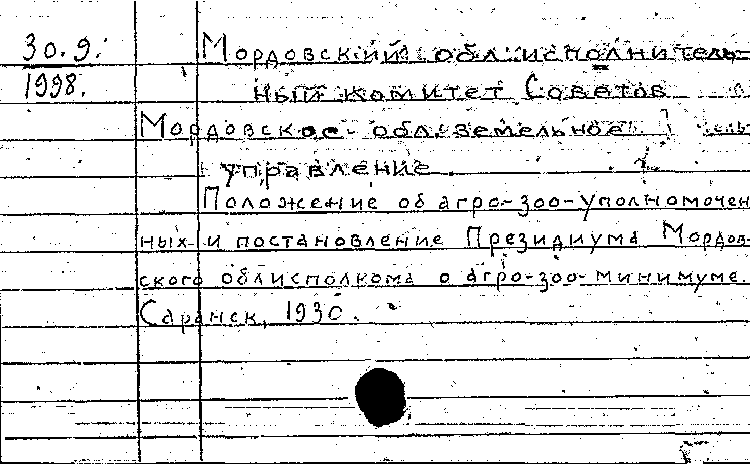 30.9.
1998.
Мордовский обл. исполнитель-
ный комитет Советов
Мордовское обл. земельное
управление.
Положение об агро-зоо-уполномочен
ных и постановление Президиума Мордов-
ского облисполкома о агро-зоо-минимуме.
Саранск, 1930.